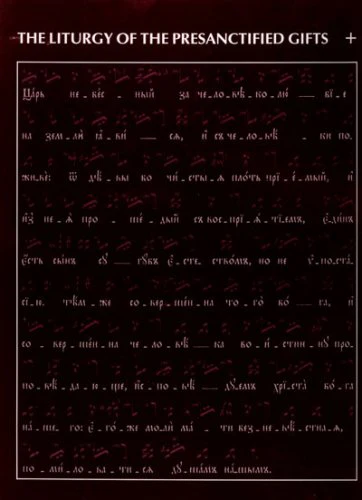 THE LITURGY OF THE PRESANCTIFIED GIFTS +
Цар҄ь не - бес - ный за че - ло - вѣ - ко - лю - бї - е
на зем - ли ꙗ - ви - сѧ, и съ че - ло - вѣ - ки по -
живе: ѿ дѣ - вы бо чи - сты - ѧ плоть прї - е - мый, и
из не - ѧ про - шед - дый съ воспрї - ѧ - тї - емъ, единъ
есть сынъ су - губъ е - сте - ствомъ, но не ѵ - поста -
сї - ю. тѣм - же со - вер - шен - на то - го бо - га, и
со - вер - шен - на че - ло - вѣ - ка во - и - стин - ну про -
по - вѣ - да - ю - ще, ис - по - вѣ - дуемъ хрїста бо - га
на - ше - го: е - го - же моли ма - ти без не - вѣ - стнаѧ,
по - ми - ло - ва - ти - сѧ ду - шамъ нашымъ.